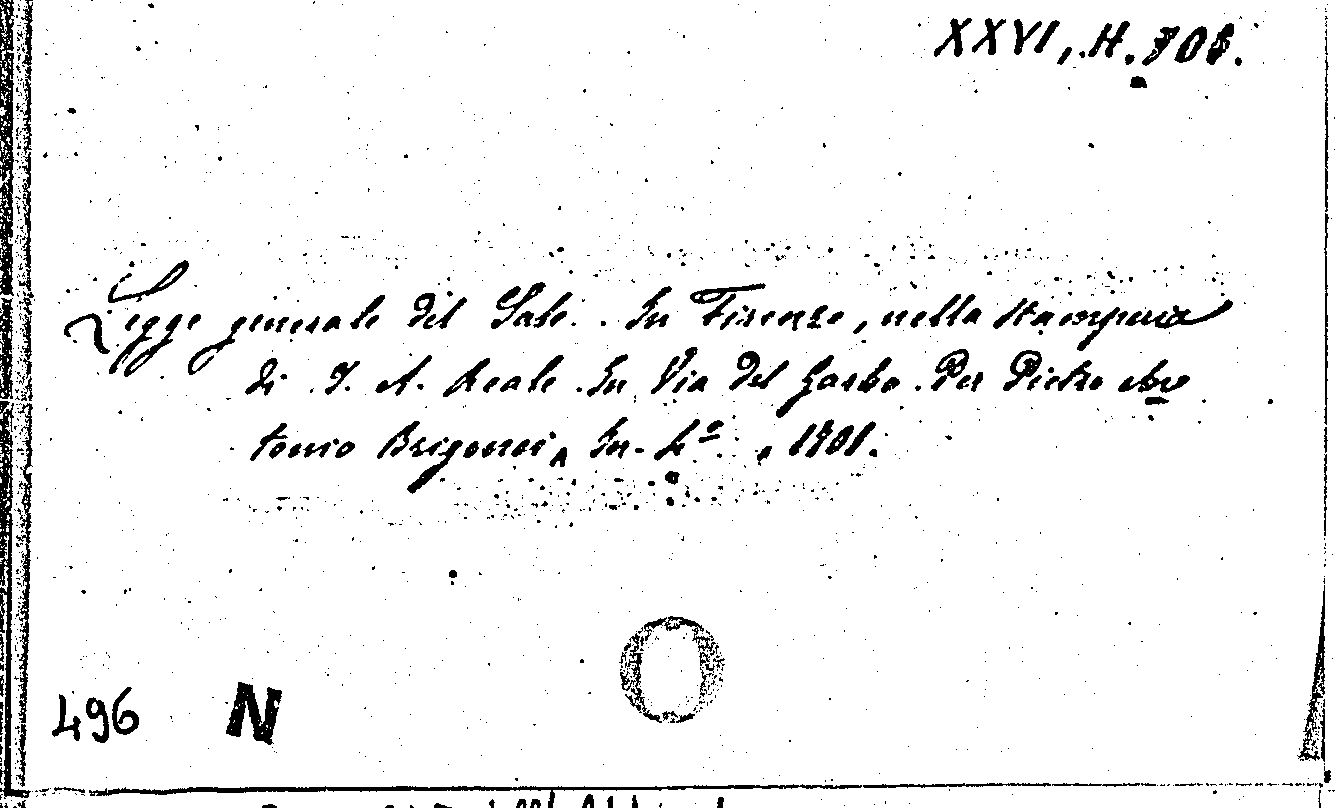 XXVI, H. 708.
Legge generale del Sale. In Firenze, nella Stamperia
di S. A. Reale. In Via del Garbo. Per Pietro An=
tonio Brigonci, In-4º.
496 N